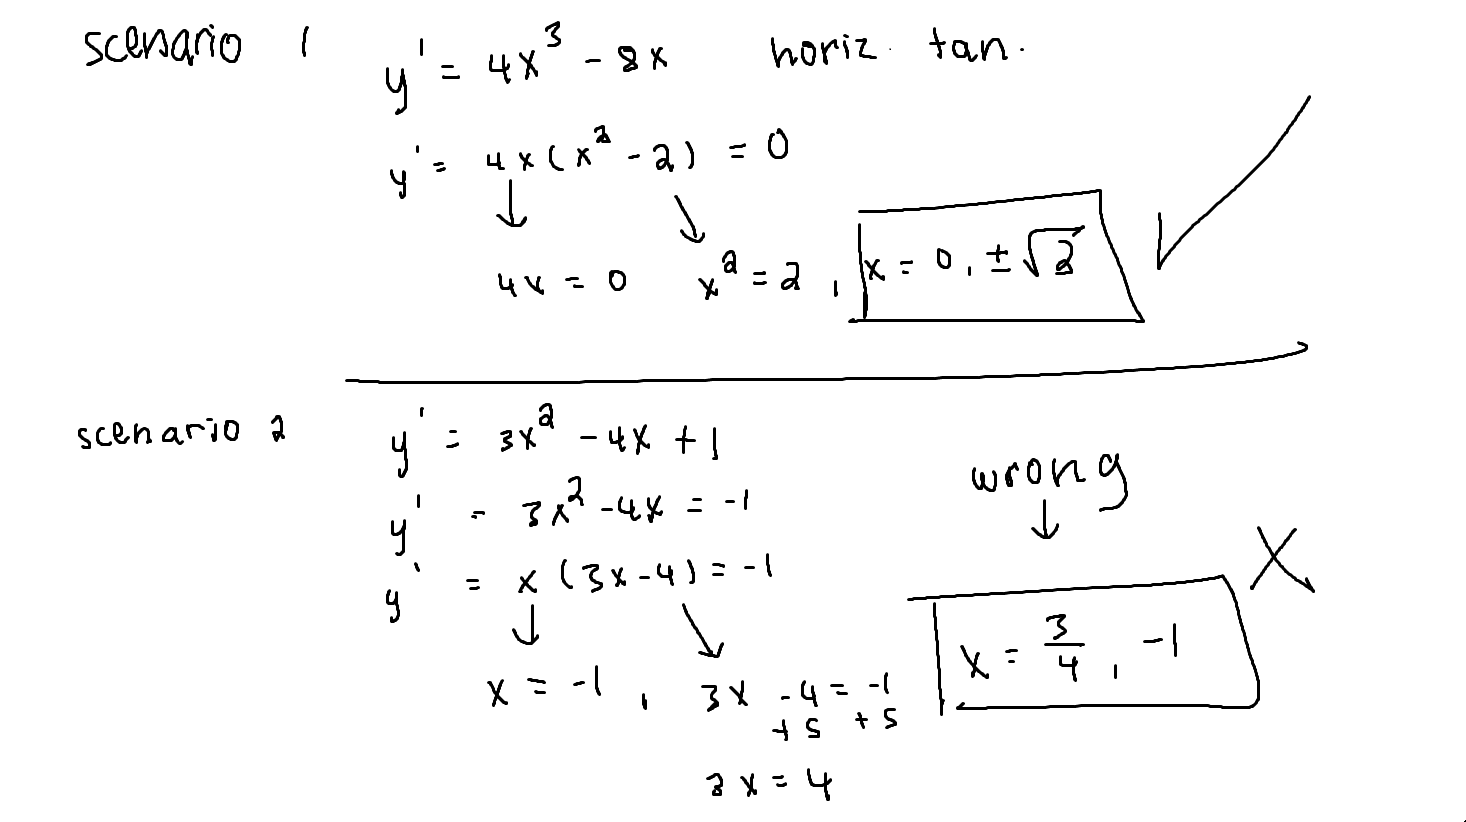 scenario 1
y' = 4x³ - 8x horiz. tan.
y' = 4x(x² - 2) = 0
↓ ↘
4x = 0 x² = 2 , x = 0, ±√2 ✓
scenario 2
y' = 3x² - 4x + 1
y' = 3x² - 4x = -1
y' = x(3x-4) = -1
↓ ↘
x = -1 , 3x - 4 = -1
+5 +5
3x = 4
wrong
↓
x = 3/4, -1 X